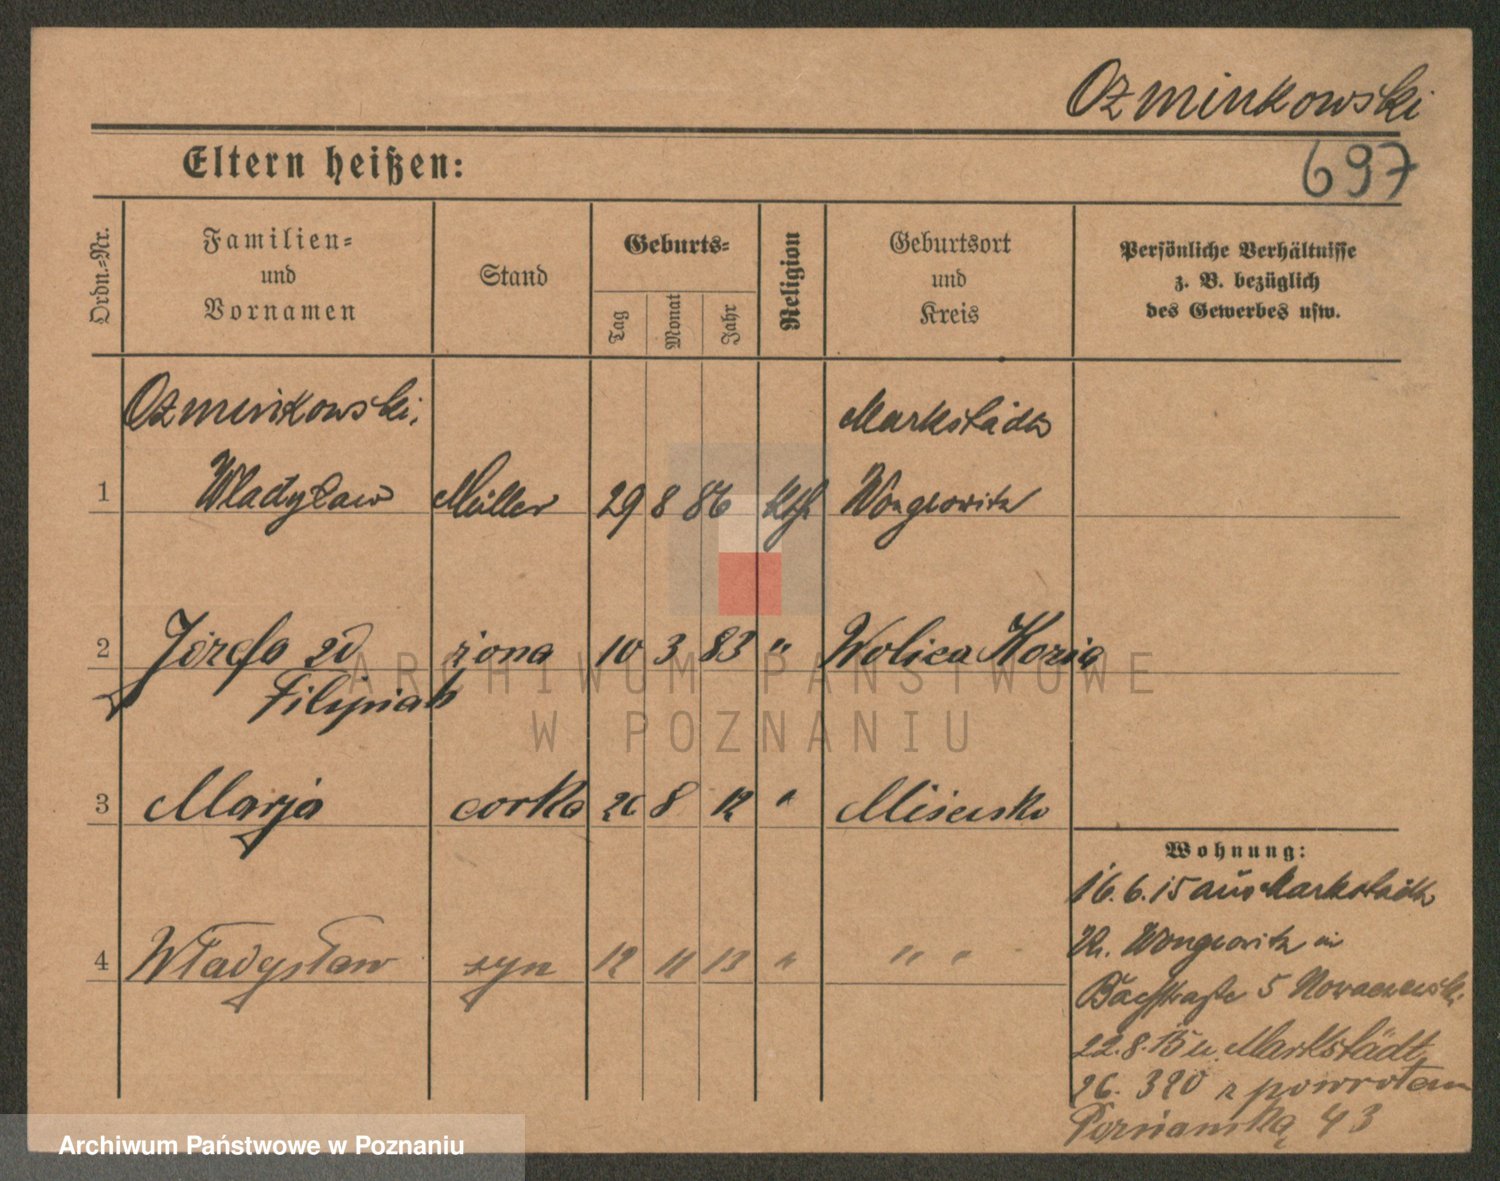 Ozminkowski
697
Eltern heißen:
Ordn.-Nr.
Familien-
und
Vornamen
Stand
Geburts-
Tag
Monat
Jahr
Religion
Geburtsort
und
Kreis
Persönliche Verhältnisse
z. B. bezüglich
des Gewerbes usw.
Ozminkowski
Markstädt
1 Wladyslaw Müller 29 8 86 kth Wongrowitz
2 Józefa zd żona 10 3 83 " Wolica Kozia
Filipiak
3 Marja corka 26 8 12 "
4 Władysław syn 12 11 13 " " "
Wohnung:
16.6.15 aus Markstädt
Kr. Wongrowitz in
Bachstraße 5 Nowaczewski
22.8.15 n. Markstädt
26. 3 20 z powrotem
Poznańska 43
ARCHIWUM PAŃSTWOWE
W POZNANIU
Archiwum Państwowe w Poznaniu